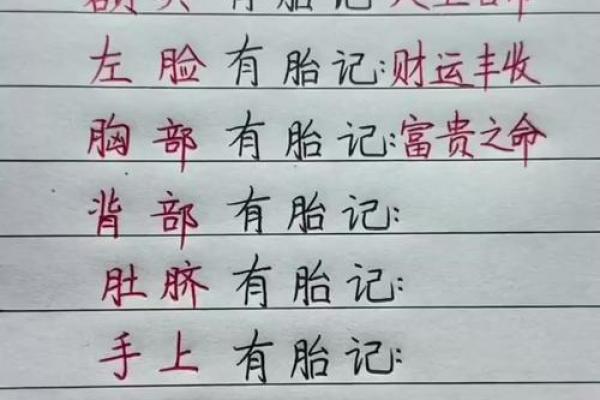 有胎记:
左脸有胎记:财运丰收
胸部有胎记:富贵之命
背部有胎记:
肚脐有胎记:
手上有胎记: